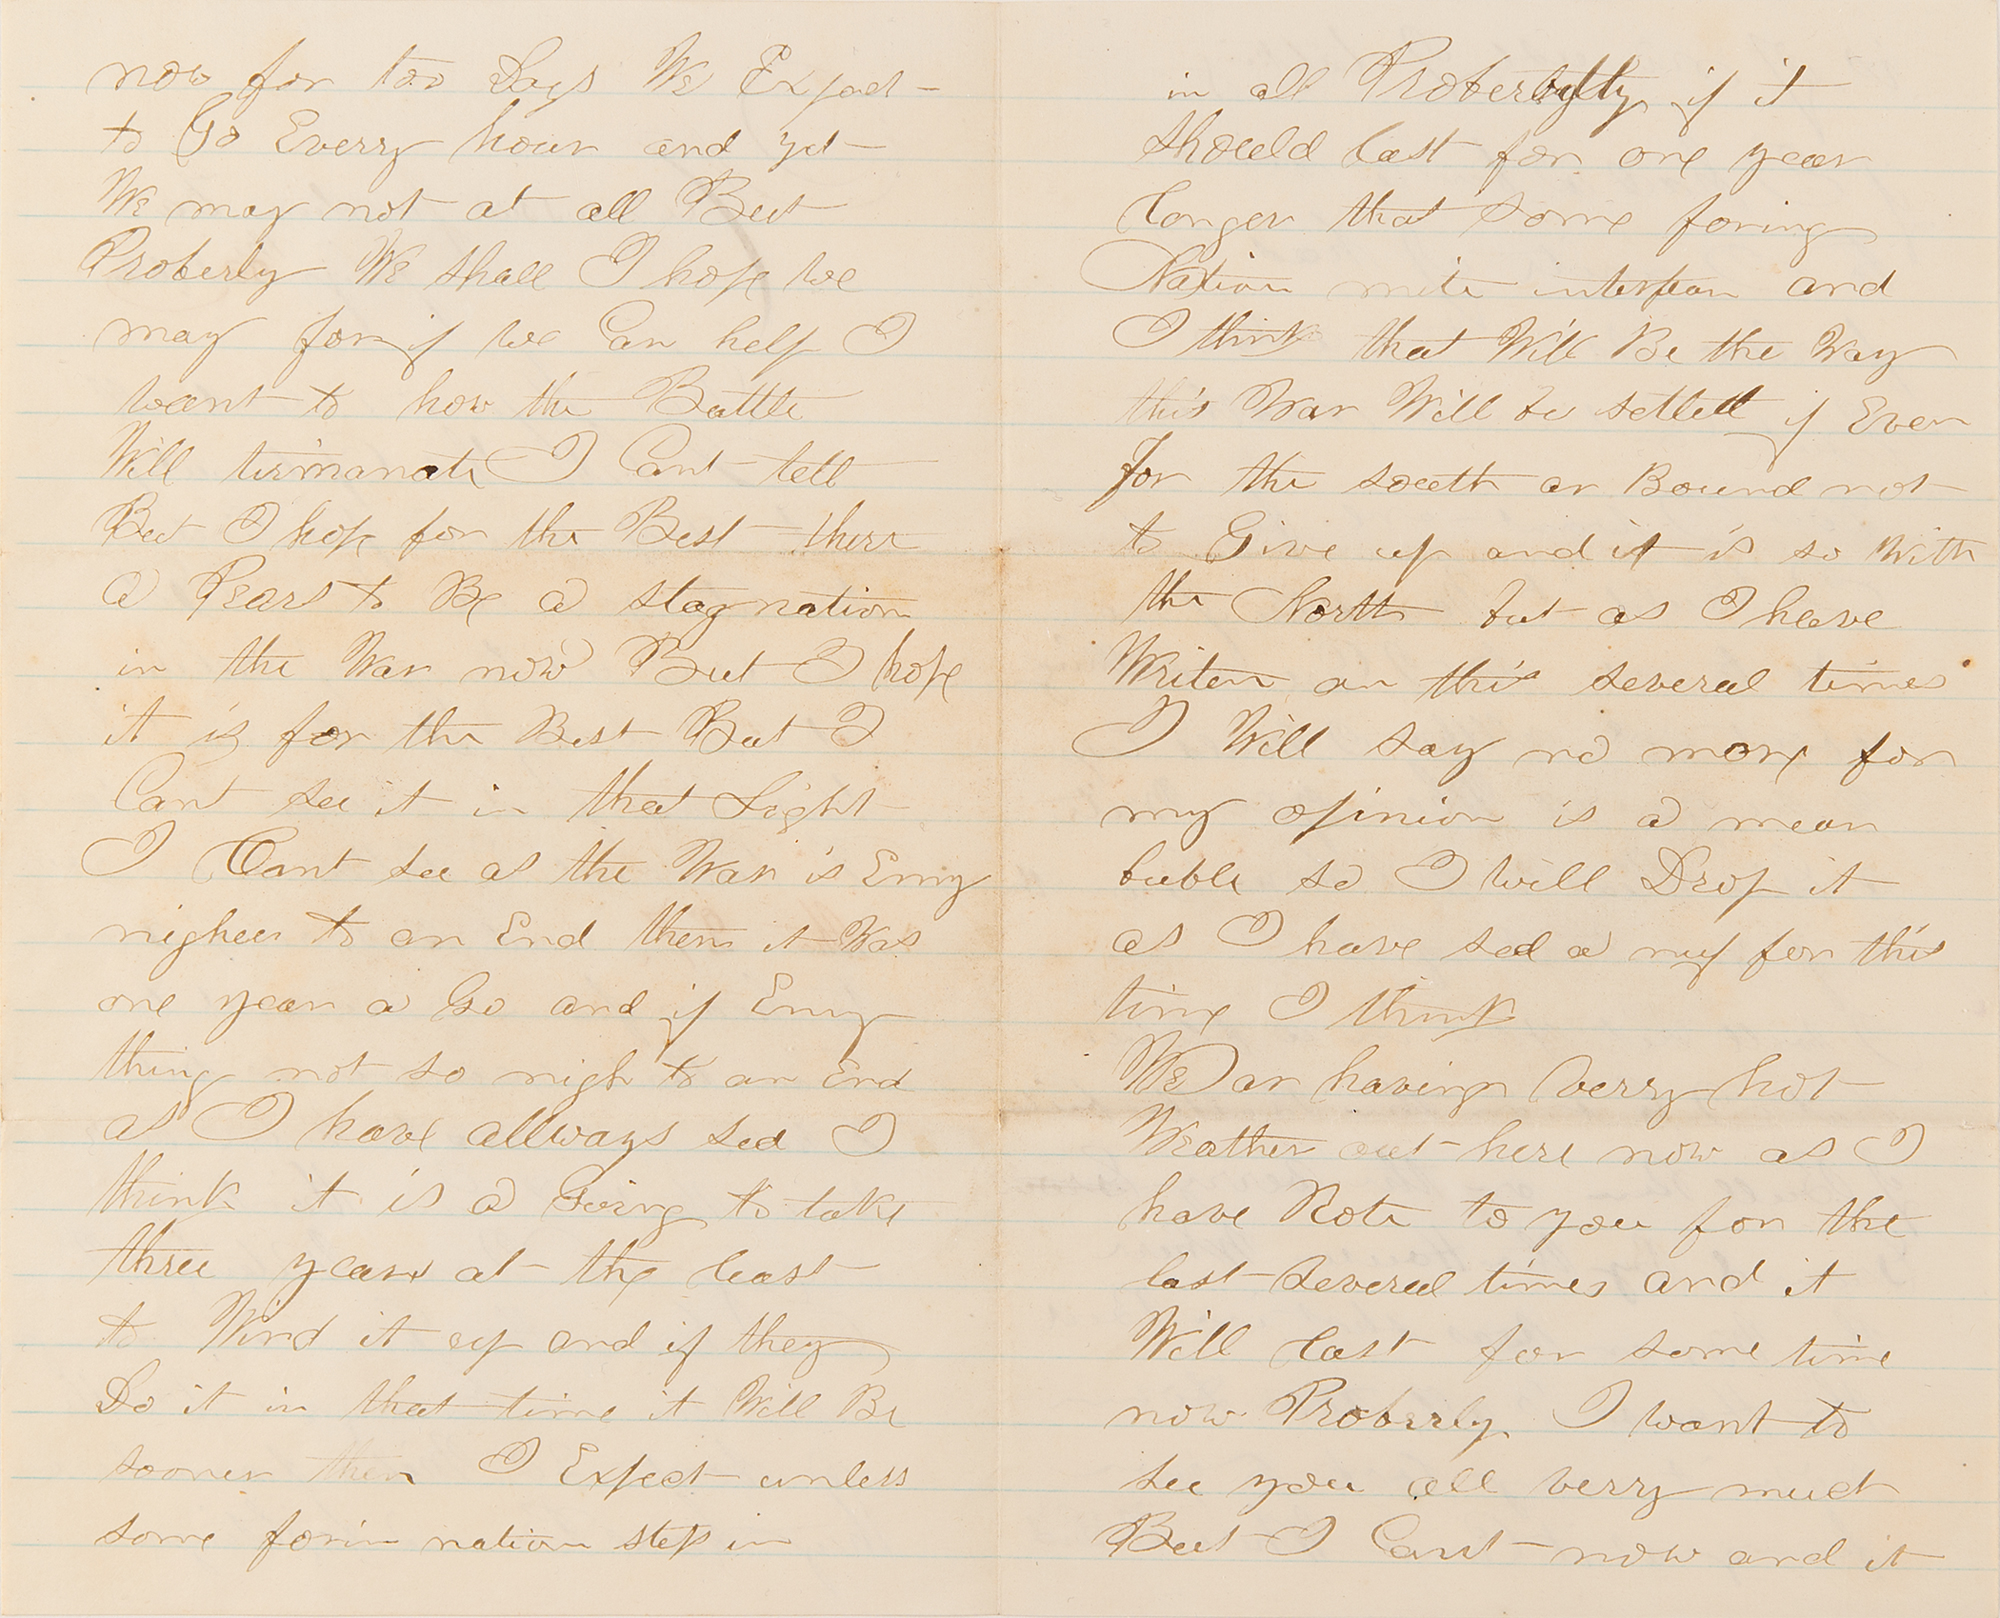 now for too Days We Expect
to Go Everry hour and yet
We may not at all But
Proberly We shall I hope we
may for if we Can help I
want to how the Battle
Will tirmanate I Cant tell
But I hope for the Best there
a Pears to Be a stagnation
in the War now But I hope
it is for the Best But I
Cant see it in that Light
I Cant see as the War is Enny
nigher to an End then it Was
one year a Go and if Enny
thing not so nigh to an End
as I have allways sed I
think it is a Going to take
three years at the least
to Wind it up and if they
Do it in that time it Will Be
sooner then I Expect unless
some forin nation step in
in all Proberbylty if it
should last for one year
longer that some foring
Nation mite interfear and
I think that Will Be the Way
this War Will be settled if Ever
for the south ar Bound not
to Give up and it is so With
the North but as I have
Writen on this several times
I Will say no more for
my opinion is a mear
buble so I will Drop it
as I have sed a nuf for this
time I think
We ar having verry hot
Weather out here now as I
have Rote to you for the
last several times and it
Will last for some time
now Proberly I want to
see you all verry much
But I Cant now and it